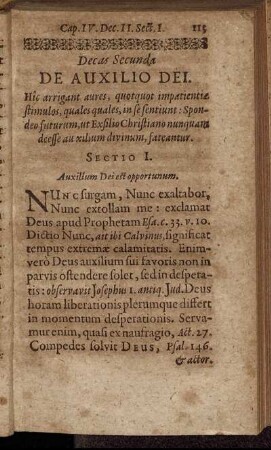 Cap. IV. Dec. II. Sect. I. 115
Decas Secunda
DE AUXILIO DEI.
Hic arrigant aures, quotquot impatientiæ
stimulos, quales quales, in se sentiunt: Spon-
deo futurum, ut Exsilio Christiano nunquam
deesse auxilium divinum, fateantur.
SECTIO I.
Auxilium Dei est opportunum.
NUNC surgam, Nunc exaltabor,
Nunc extollam me: exclamat
Deus apud Prophetam Esa. c. 33. v. 10.
Dictio Nunc, ait ibi Calvinus, significat
tempus extremæ calamitatis. Enim-
verò Deus auxilium sui favoris non in
parvis ostendere solet, sed in despera-
tis: observavit Josephus 1. antiq. Jud. Deus
horam liberationis plerumque differt
in momentum desperationis. Serva-
mur enim, quasi ex naufragio, Act. 27.
Compedes solvit DEUS, Psal. 146.
& actor.